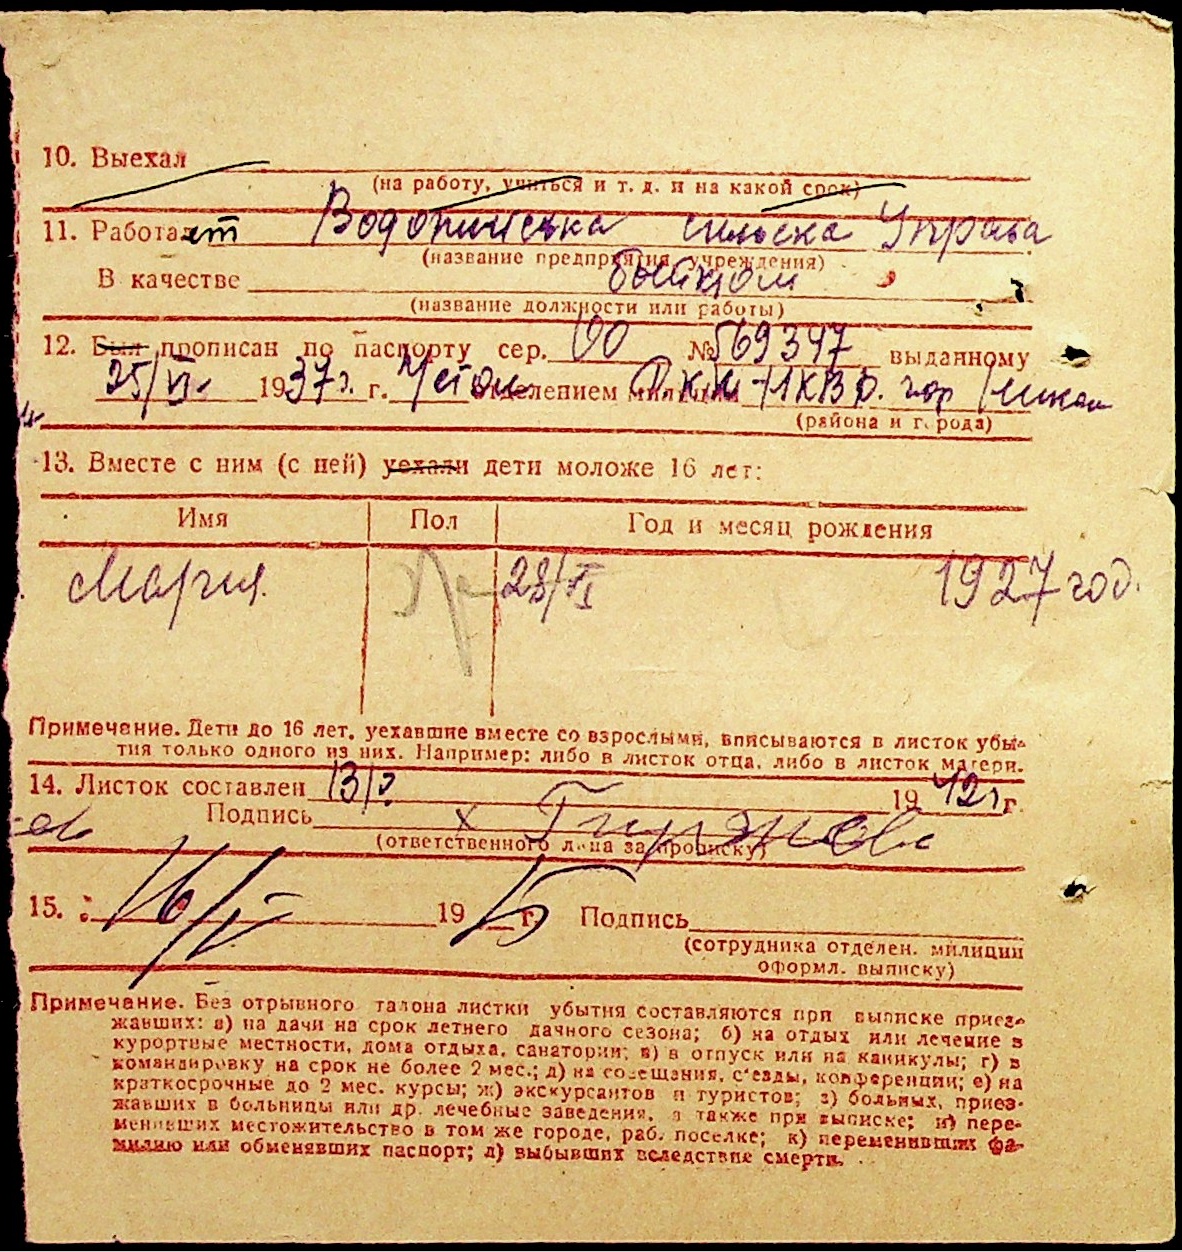 10. Выехал
(на работу, учиться и т. д. и на какой срок)
11. Работает Водопийська сильска Управа
(название предприятия, учреждения)
В качестве
(название должности или работы)
12. Был прописан по паспорту сер. № 569347 выданному
25/VI 1937 г. г. отделением милиции гор
(района и города)
13. Вместе с ним (с ней) уехали дети моложе 16 лет:
Имя Пол Год и месяц рождения
Мария 28/VI 1927 год.
Примечание. Дети до 16 лет, уехавшие вместе со взрослыми, вписываются в листок убы-
тия только одного из них. Например: либо в листок отца, либо в листок матери.
14. Листок составлен 13/ 19 42 г.
Подпись
(ответственного лица за прописку)
15. 16/ 19 г. Подпись
(сотрудника отделен. милиции
оформл. выписку)
Примечание. Без отрывного талона листки убытия составляются при выписке приез-
жавших: а) на дачи на срок летнего дачного сезона; б) на отдых или лечение в
курортные местности, дома отдыха, санатории; в) в отпуск или на каникулы; г) в
командировку на срок не более 2 мес.; д) на совещания, съезды, конференции; е) на
краткосрочные до 2 мес. курсы; ж) экскурсантов и туристов; з) больных, приез-
жавших в больницы или др. лечебные заведения, а также при выписке; и) пере-
менивших местожительство в том же городе, раб. поселке; к) переменивших фа-
милию или обменявших паспорт; л) выбывших вследствие смерти.